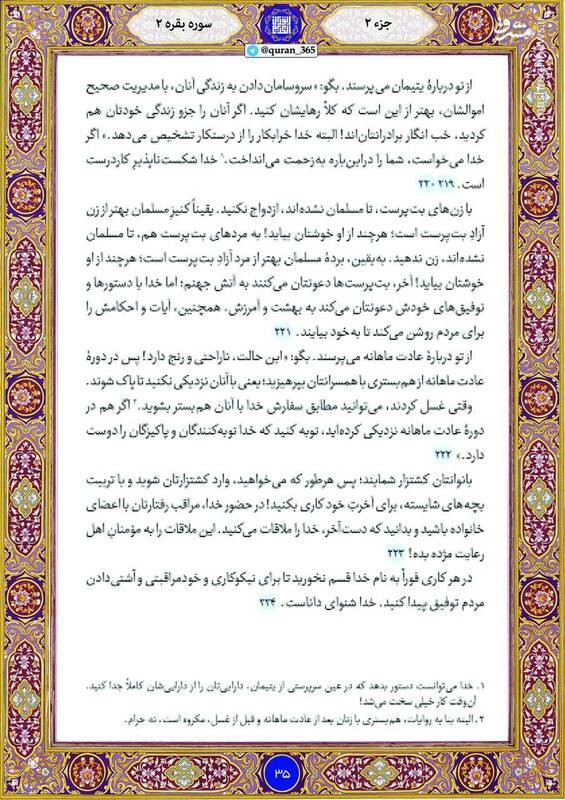 جزء ۲
سوره بقره ۲
@quran_365
از تو دربارهٔ یتیمان می‌پرسند. بگو: «سروسامان‌دادن به زندگی آنان، با مدیریت صحیح
اموالشان، بهتر از این است که کلاً رهایشان کنید. اگر آنان را جزو زندگی خودتان هم
کردید، خب انگار برادرانتان‌اند! البته خدا خرابکار را از درستکار تشخیص می‌دهد.» اگر
خدا می‌خواست، شما را دراین‌باره به‌زحمت می‌انداخت.۱ خدا شکست‌ناپذیرِ کاردرست
است. ۲۱۹ ۲۲۰
با زن‌های بت‌پرست، تا مسلمان نشده‌اند، ازدواج نکنید. یقیناً کنیزِ مسلمان بهتر از زن
آزادِ بت‌پرست است؛ هرچند از او خوشتان بیاید! به مردهای بت‌پرست هم، تا مسلمان
نشده‌اند، زن ندهید. به‌یقین، بردهٔ مسلمان بهتر از مرد آزادِ بت‌پرست است؛ هرچند از او
خوشتان بیاید! آخر، بت‌پرست‌ها دعوتتان می‌کنند به آتش جهنم؛ اما خدا با دستورها و
توفیق‌های خودش دعوتتان می‌کند به بهشت و آمرزش. همچنین، آیات و احکامش را
برای مردم روشن می‌کند تا به‌خود بیایند. ۲۲۱
از تو دربارهٔ عادت ماهانه می‌پرسند. بگو: «این حالت، ناراحتی و رنج دارد! پس در دورهٔ
عادت ماهانه از هم‌بستری با همسرانتان بپرهیزید؛ یعنی با آنان نزدیکی نکنید تا پاک شوند.
وقتی غسل کردند، می‌توانید مطابق سفارش خدا با آنان هم‌بستر بشوید.۲ اگر هم در
دورهٔ عادت ماهانه نزدیکی کرده‌اید، توبه کنید که خدا توبه‌کنندگان و پاکیزگان را دوست
دارد.» ۲۲۲
بانوانتان کشتزار شمایند؛ پس هرطور که می‌خواهید، وارد کشتزارتان شوید و با تربیت
بچه‌های شایسته، برای آخرتِ خود کاری بکنید! در حضور خدا، مراقب رفتارتان با اعضای
خانواده باشید و بدانید که دست‌آخر، خدا را ملاقات می‌کنید. این ملاقات را به مؤمنانِ اهل
رعایت مژده بده! ۲۲۳
در هر کاری فوراً به نام خدا قسم نخورید تا برای نیکوکاری و خودمراقبتی و آشتی‌دادن
مردم توفیق پیدا کنید. خدا شنوای داناست. ۲۲۴
۱. خدا می‌توانست دستور بدهد که در عین سرپرستی از یتیمان، دارایی‌تان را از دارایی‌شان کاملاً جدا کنید.
آن‌وقت کار خیلی سخت می‌شد!
۲. البته بنا به روایات، هم‌بستری با زنان بعد از عادت ماهانه و قبل از غسل، مکروه است، نه حرام.
۳۵